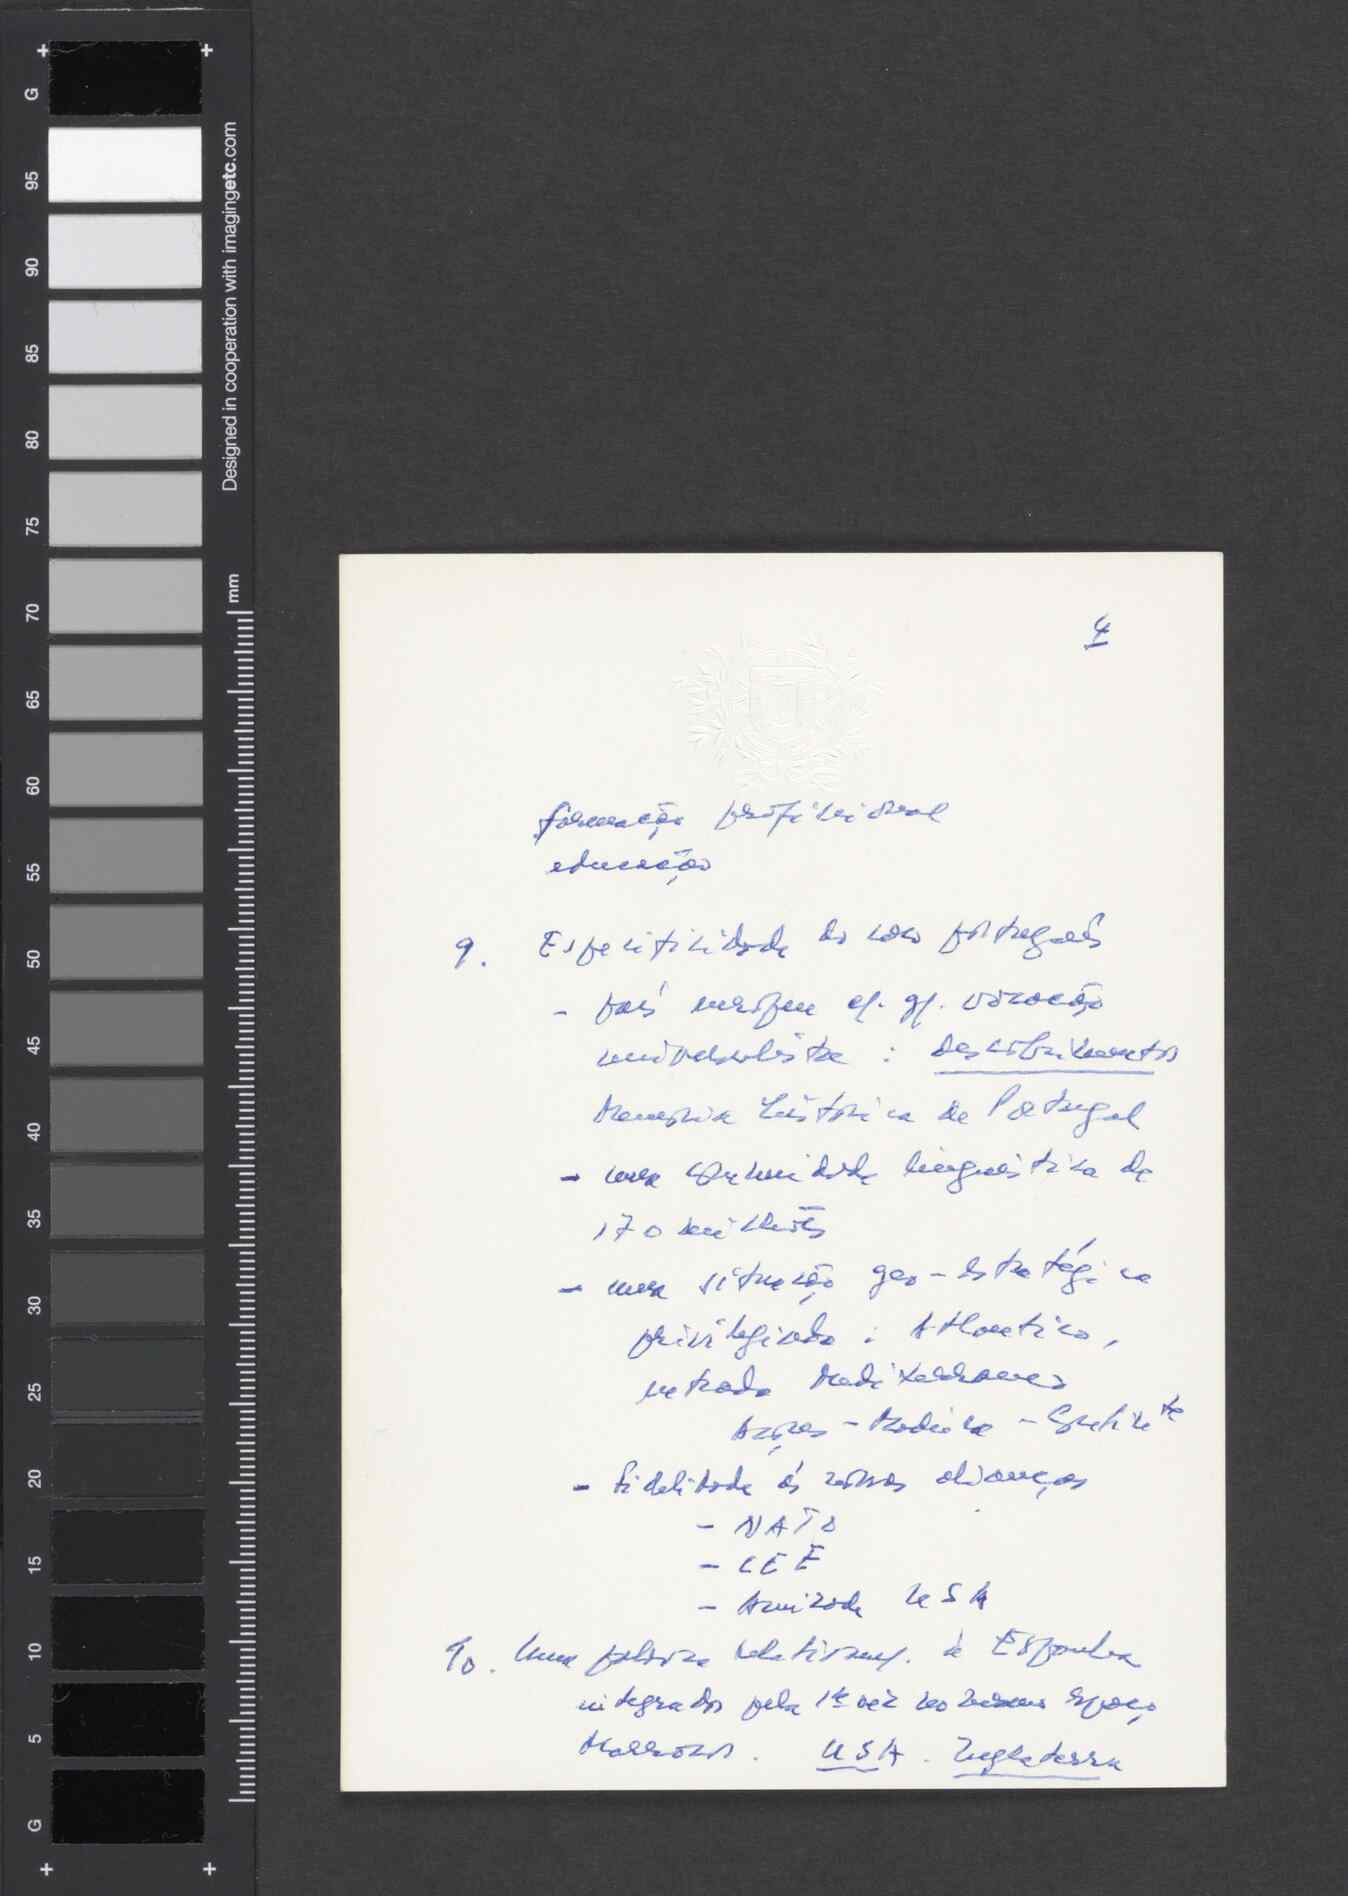 G
95
90
85
80
75
70
65
60
55
50
45
40
35
30
25
20
15
10
5
G
Designed in cooperation with imagingetc.com
mm
4
formação profissional
educação
9. Especificidade do caso português
- país europeu c/. gr. vocação
universalista : descobrimentos
Memória histórica de Portugal
- uma comunidade linguística de
170 milhões
- uma situação geo-estratégica
privilegiada : Atlântico,
entrada Mediterraneo
Açores - Madeira - Continte
- fidelidade às nossas alianças
- NATO
- CEE
- Amizade USA
10. Uma palavra relativam/. à Espanha
integrados pela 1ª vez no mesmo espaço
Marrocos. USA. Inglaterra